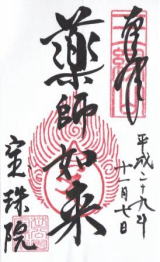 奉拝
平成二十九年
十月七日
薬師如来
宝珠院